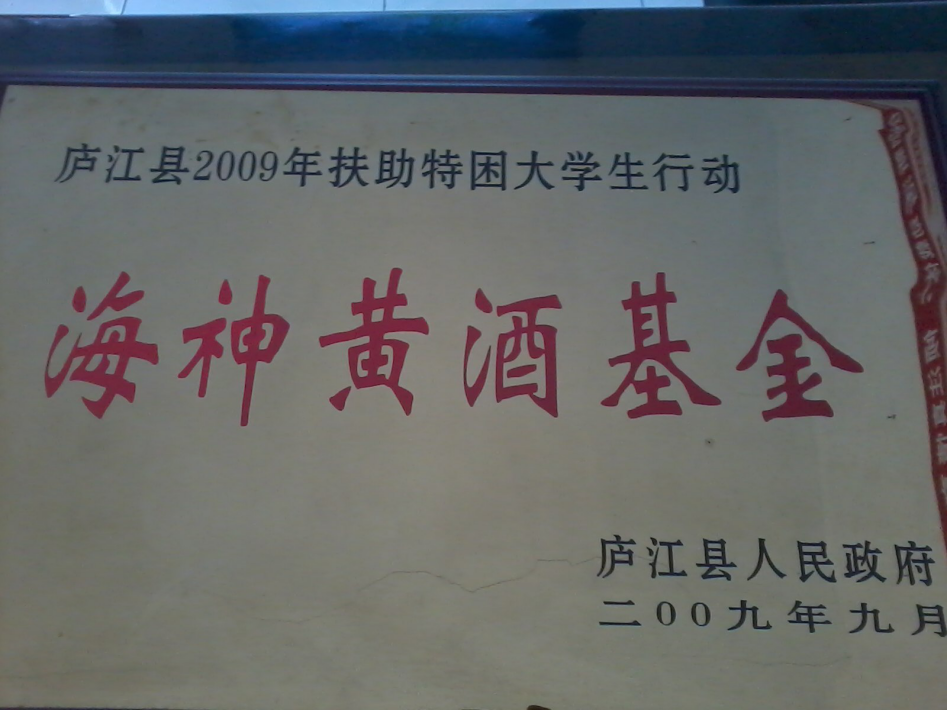 庐江县2009年扶助特困大学生行动
海神黄酒基金
庐江县人民政府
二00九年九月